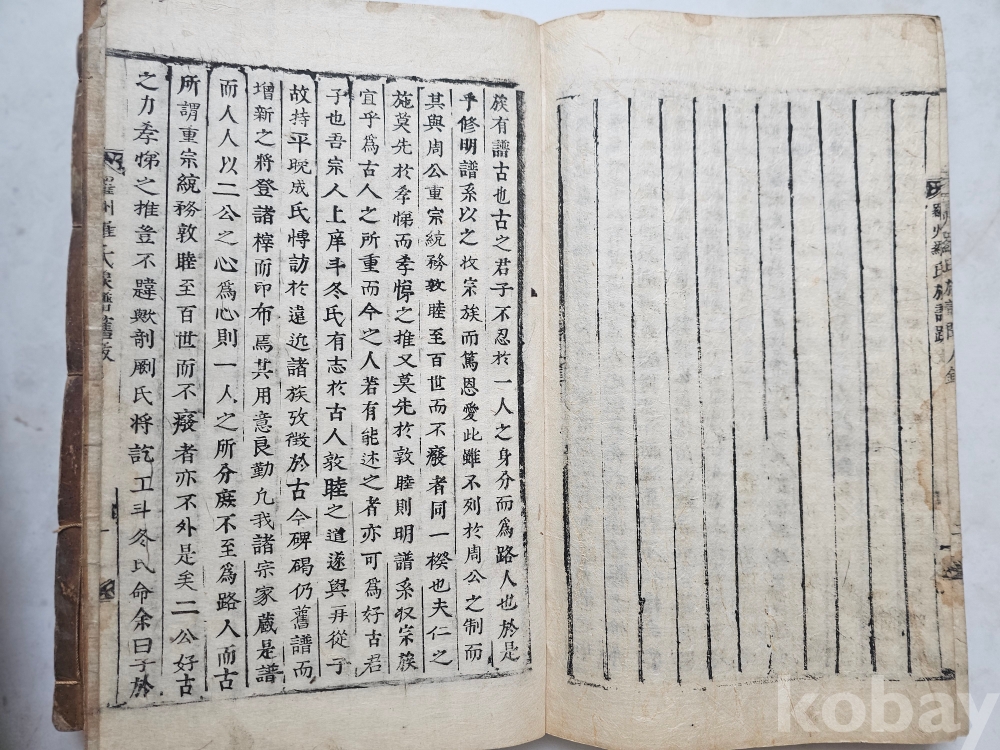 羅州羅氏族譜跋
族有譜古也古之君子不忍於一人之身分而爲路人也於是
乎修明譜系以之收宗族而篤恩愛此雖不列於周公之制而
其與周公重宗統務敦睦至百世而不廢者同一揆也夫仁之
施莫先於孝悌而孝悌之推又莫先於敦睦則明譜系収宗族
宜乎爲古人之所重而今之人若有能述之者亦可爲好古君
子也吾宗人上庠斗冬氏有志於古人敦睦之道遂與再從子
故持平晩成氏愽訪於遠近諸族攷徵於古今碑碣仍舊譜而
增新之將登諸梓而印布焉其用意良勤凢我諸宗家蔵是譜
而人人以二公之心爲心則一人之所分庶不至爲路人而古
所謂重宗統務敦睦至百世而不廢者亦不外是矣二公好古
之力孝悌之推豈不韙歟剞劂氏將訖工斗冬氏命余曰子於
羅州羅氏族譜舊跋
一
kobay